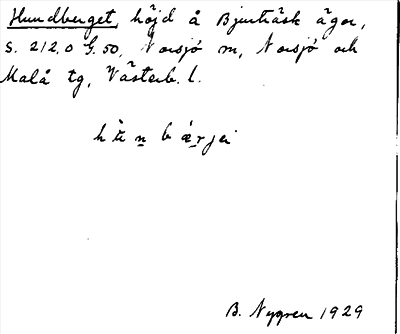 Hundberget, höjd å Bjurträsk ägor,
S. 212,0 G. 50, Norsjö m, Norsjö och
Malå tg, Västerb. l.
B. Nygren 1929